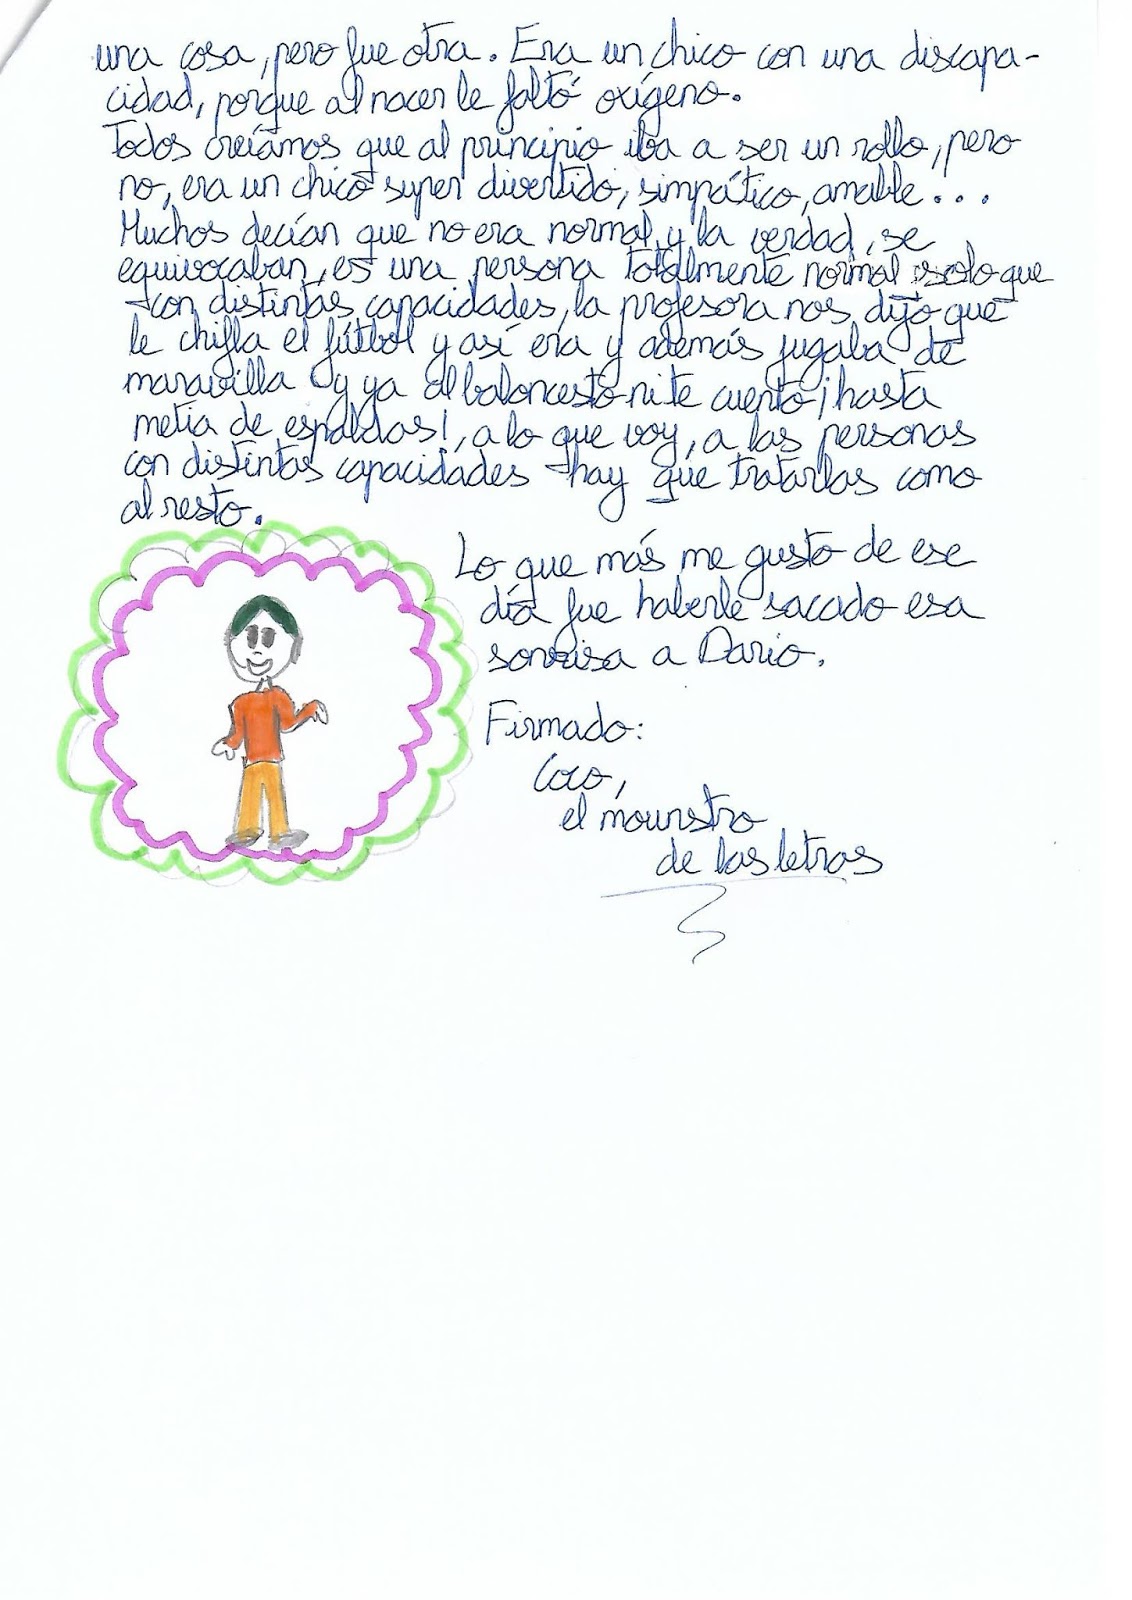 una cosa, pero fue otra. Era un chico con una discapa-
cidad, porque al nacer le faltó oxígeno.
Todos creíamos que al principio iba a ser un rollo, pero
no, era un chico super divertido, simpático, amable...
Muchos decían que no era normal, y la verdad, se
equivocaban, es una persona totalmente normal solo que
con distintas capacidades, la profesora nos dijo que
le chifla el fútbol y así era y además jugaba de
maravilla y ya al baloncesto ni te cuento ¡hasta
metia de espaldas!, a lo que voy, a las personas
con distintas capacidades hay que tratarlas como
al resto.
Lo que más me gusto de ese
día fue haberle sacado esa
sonrisa a Dario.
Firmado:
Coco,
el mounstro
de las letras